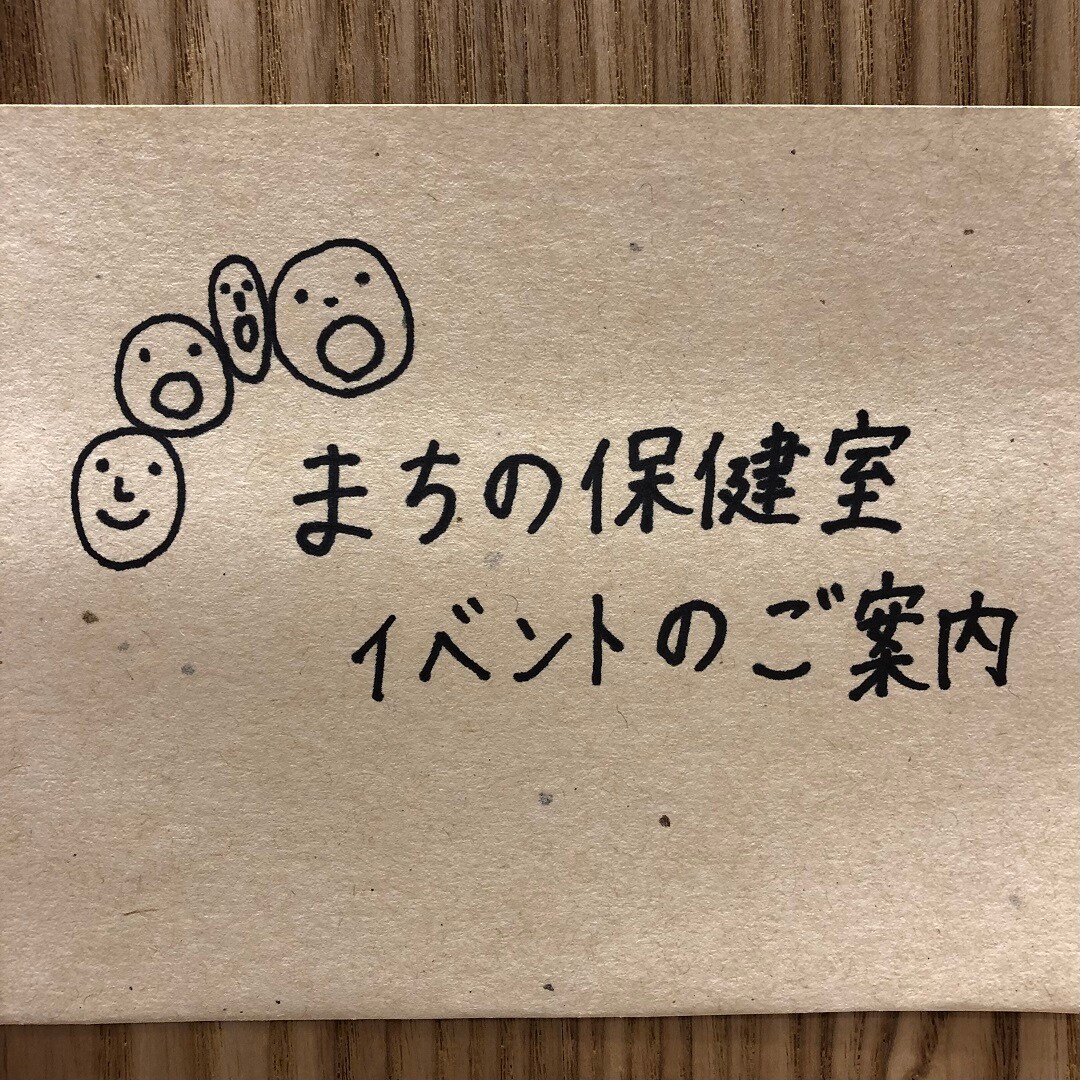 まちの保健室
イベントのご案内